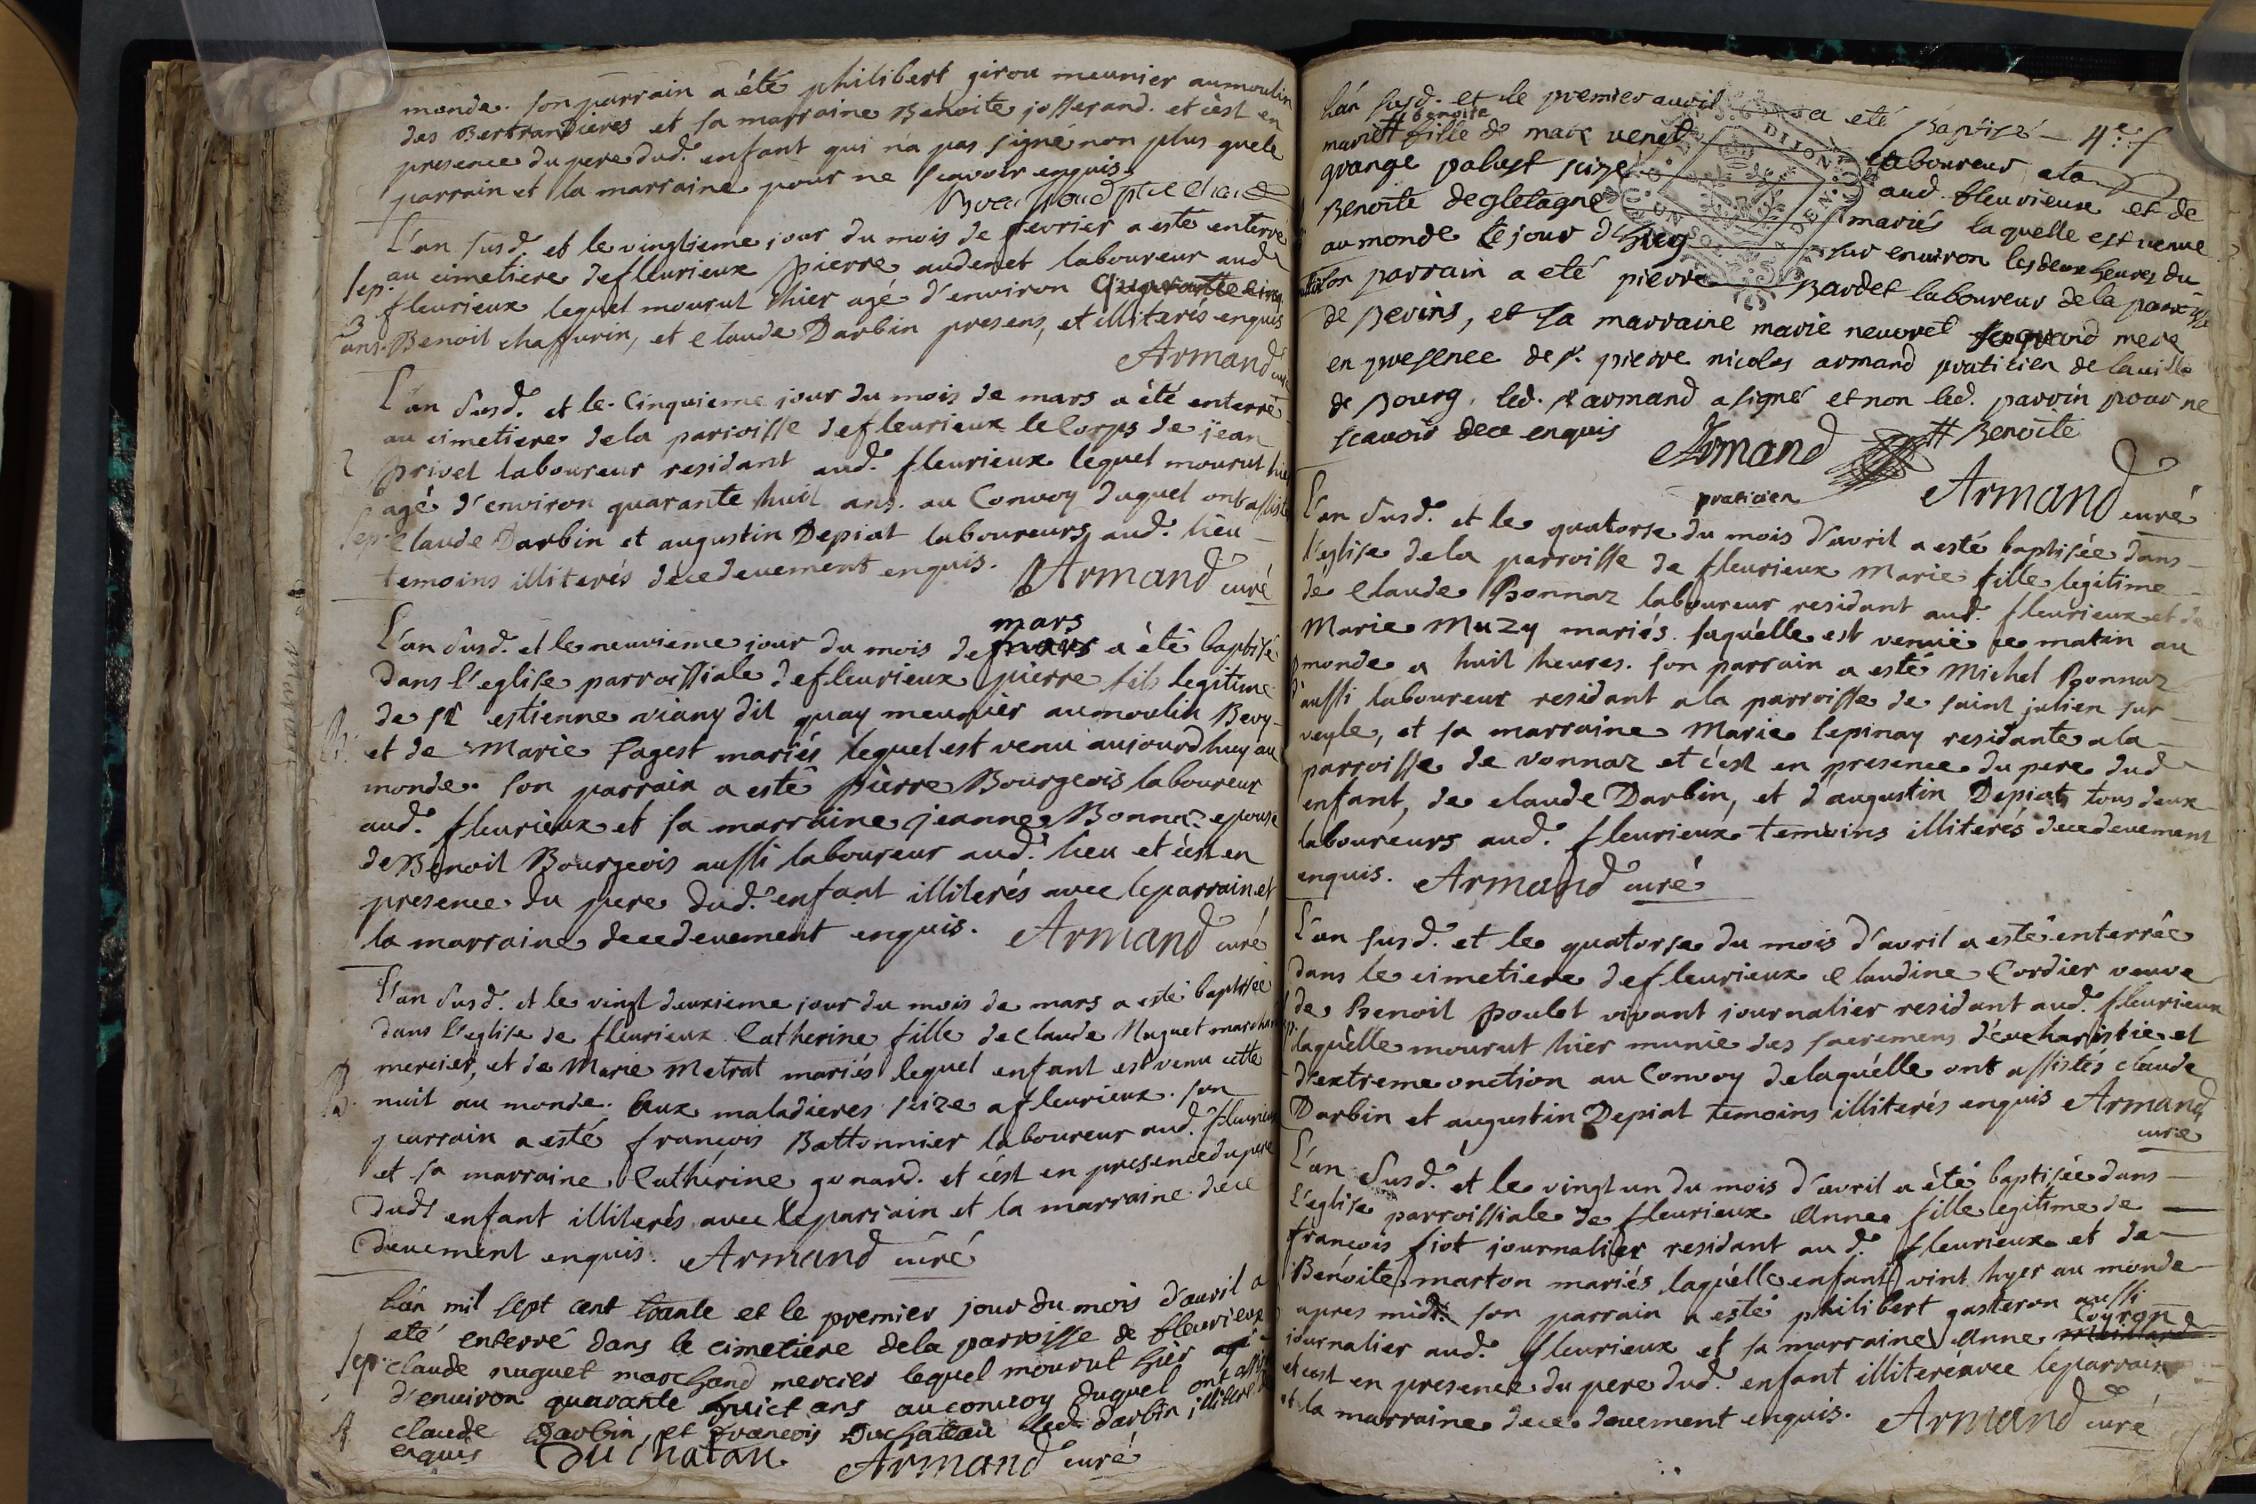 monde. son parrain a été philibert girou meunier au moulin
des Bertrandieres et sa marraine Benoite josserand. et c'est en
presence du pere dud. enfant qui na pas signé non plus que le
parrain et la marraine pour ne scavoir enquis.
L'an susd. et le vingtieme jour du mois de fevrier a esté enterré
au cimetiere de fleurieux pierre audenet laboureur aud.
Sep.
fleurieux lequel mourut hier agé d'environ
ans. Benoit chaffurin, et claude Darbin presens, et illiterés enquis
Armand curé
L'an susd. et le cinquieme jour du mois de mars a été enterré
au cimetiere de la parroisse de fleurieux le corps de jean
privet laboureur residant aud. fleurieux lequel mourut hier
agé d'environ quarante huit ans. au convoy duquel ont assisté
Sep. claude Darbin et augustin Depiat laboureurs aud. lieu
temoins illiterés de ce deuement enquis. Armand curé
mars
L'an susd. et le neuvieme jour du mois de a été baptisé
dans l'eglise parroissiale de fleurieux pierre fils legitime
de sr estienne viany dit quay meunier au moulin Bevy
B. et de Marie sagest mariés lequel est venu aujourdhuy au
monde. son parrain a esté pierre Bourgeois laboureur
aud. fleurieux et sa marraine jeanne Bonnaz epouse
de Benoit Bourgeois aussi laboureur aud. lieu et c'est en
presence du pere dud. enfant illiterés avec le parrain et
la marraine de ce deuement enquis. Armand curé
L'an susd. et le vingt deuxieme jour du mois de mars a esté baptisée
dans l'eglise de fleurieux Catherine fille de claude Nuguet marchand
mercier, et de Marie Metrat mariés lequel enfant est venu cette
B. nuit au monde. aux maladieres size a fleurieux. son
parrain a esté françois Battonnier laboureur aud. fleurieux
et sa marraine Catherine gonard. et c'est en presence du pere
dudt enfant illiterés avec le parrain et la marraine de ce
deuement enquis. Armand curé
L'an mil sept cent trante et le premier jour du mois d'avril a
eté enterré dans le cimetiere de la parroisse de fleurieux
Sep. claude nuguet marchand mercier lequel mourut hier agé
d'environ quarante huict ans au convoy duquel ont assisté
claude Darbin, et francois Duchateau led. darbin illiteré
enquis Du Chatau Armand curé
L'an susd. et le premier avril a eté baptisé
benoite
fille de marc venet laboureur a la
grange palust size aud. fleurieux et de
Benoite degletagne mariés laquelle est venue
au monde le jour d'hier sur environ les deux heures du
son parrain a eté pierre Bardet laboureur de la parroisse
de perins, et sa marraine marie neuvret mere
en presence de sr. pierre nicolas armand praticien de la ville
de bourg, led. sr armand a signé et non led. parrin pour ne
scavoir de ce enquis Armand # Benoite
praticien Armand curé
L'an susd. et le quatorse du mois d'avril a esté baptisée dans
l'eglise de la parroisse de fleurieux Marie fille legitime
de claude Bonnaz laboureur residant aud. fleurieux et de
Marie Muzy mariés. laquelle est venuë ce matin au
monde a huit heures. son parrain a esté Michel Bonnaz
aussi laboureur residant a la parroisse de saint julien sur
veyle, et sa marraine Marie lepinay residante a la
parroisse de vonnaz et c'est en presence du pere dud.
enfant, de claude Darbin, et d'augustin Depiat, tous deux
laboureurs aud. fleurieux temoins illiterés de ce deuement
enquis. Armand curé
L'an susd. et le quatorse du mois d'avril a esté enterrée
dans le cimetiere de fleurieux claudine Cordier veuve
de Benoit poulet vivant journalier residant aud. fleurieux
laquelle mourut hier munie des sacremens d'eucharistie et
d'extreme onction au convoy de laquelle ont assistés claude
Darbin et augustin Depiat temoins illiterés enquis Armand
curé
L'an susd. et le vingt un du mois d'avril a été baptisée dans
l'eglise parroissiale de fleurieux Anne fille legitime de
francois fiot journalier residant aud. fleurieux et de
Benoite marton mariés laquelle enfant vint hyer au monde
apres midi. son parrain a esté philibert gasteron aussi
journalier aud. fleurieux et sa marraine Anne Coyron
et cest en presence du pere dud. enfant illiteré avec le parrain
et la marraine de ce deuement enquis. Armand curé